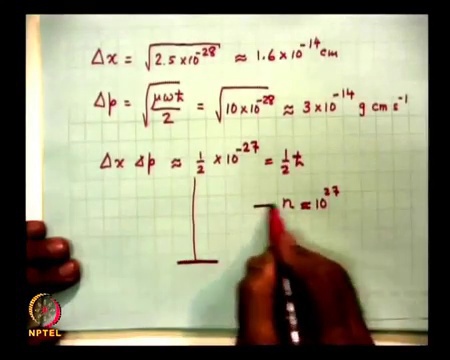 Δx = √2.5×10⁻²⁸ ≈ 1.6×10⁻¹⁴ cm
Δp = √μωħ/2 = √10×10⁻²⁸ ≈ 3×10⁻¹⁴ g cm s⁻¹
Δx Δp ≈ 1/2 × 10⁻²⁷ = 1/2 ħ
n ≈ 10²⁷
NPTEL